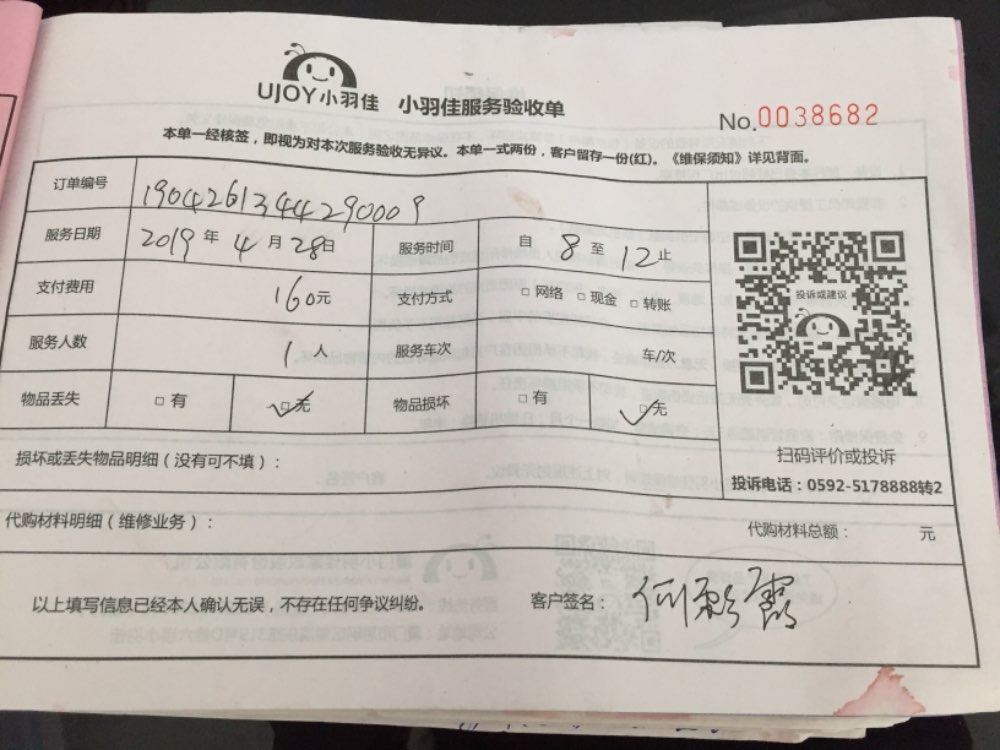 UJOY小羽佳 小羽佳服务验收单
No.0038682
本单一经核签，即视为对本次服务验收无异议。本单一式两份，客户留存一份(红)。《维保须知》详见背面。
订单编号 1904261344290009
服务日期 2019 年 4 月 28日 服务时间 自 8 至 12 止
支付费用 160元 支付方式 □ 网络 □ 现金 □ 转账
投诉或建议
服务人数 1 人 服务车次 车/次
物品丢失 □ 有 ☑无 物品损坏 □ 有 ☑无
扫码评价或投诉
损坏或丢失物品明细（没有可不填）：
投诉电话：0592-5178888转2
代购材料明细（维修业务）： 代购材料总额： 元
以上填写信息已经本人确认无误，不存在任何争议纠纷。 客户签名：何彩霞